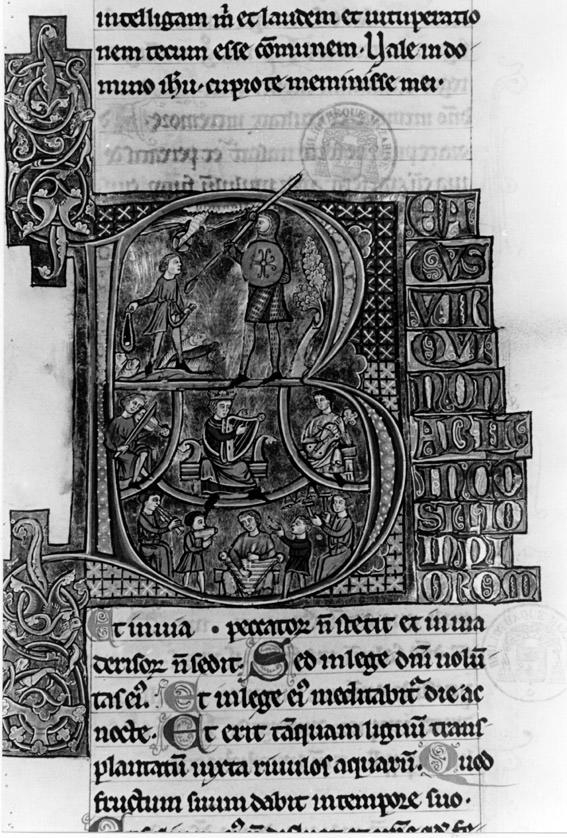 intelligam m̃ et laudem et uituperatio
nem tecum esse cõmunem. Vale in do
mino ihu. cupio te meminisse mei.
B
EA
TVS
VIR
QVI
NON
ABIIT
IN CO
SILIO
INPI
ORVM
Et in uia . peccatoꝝ ñ stetit et in uia
derisoꝝ ñ sedit. Sed in lege dñi uolũ
tas eiꝰ. Et in lege eiꝰ meditabit᷑ die ac
nocte. Et erit tãquam lignũ trans
plantatũ iuxta riuulos aquarũ. Quod
fructum suum dabit in tempore suo.